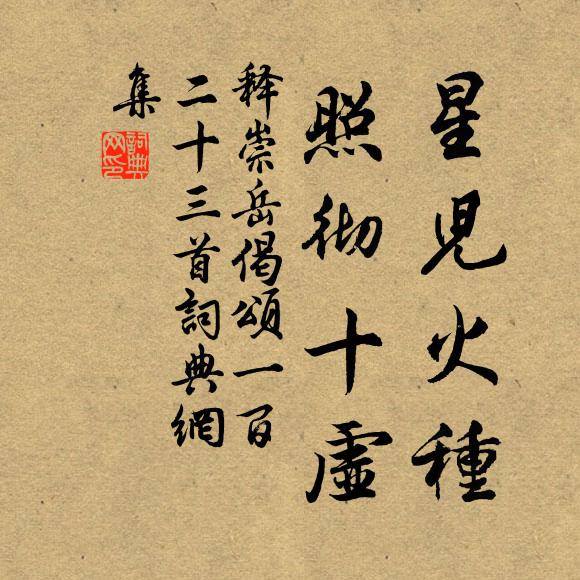 星児火種
照彻十虛
释崇岳偈頌一百
二十三首詞典網
集
詞典網印